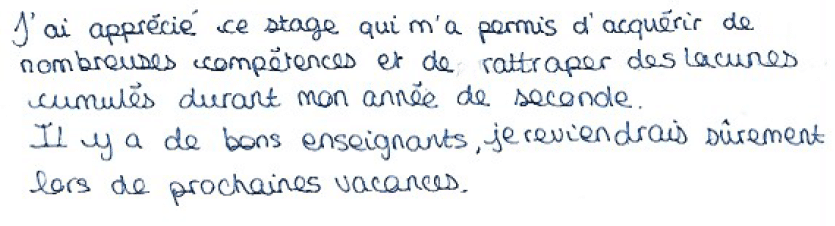 J'ai apprécié ce stage qui m'a permis d'acquérir de
nombreuses compétences et de rattraper des lacunes
cumulés durant mon année de seconde.
Il y a de bons enseignants, je reviendrais sûrement
lors de prochaines vacances.